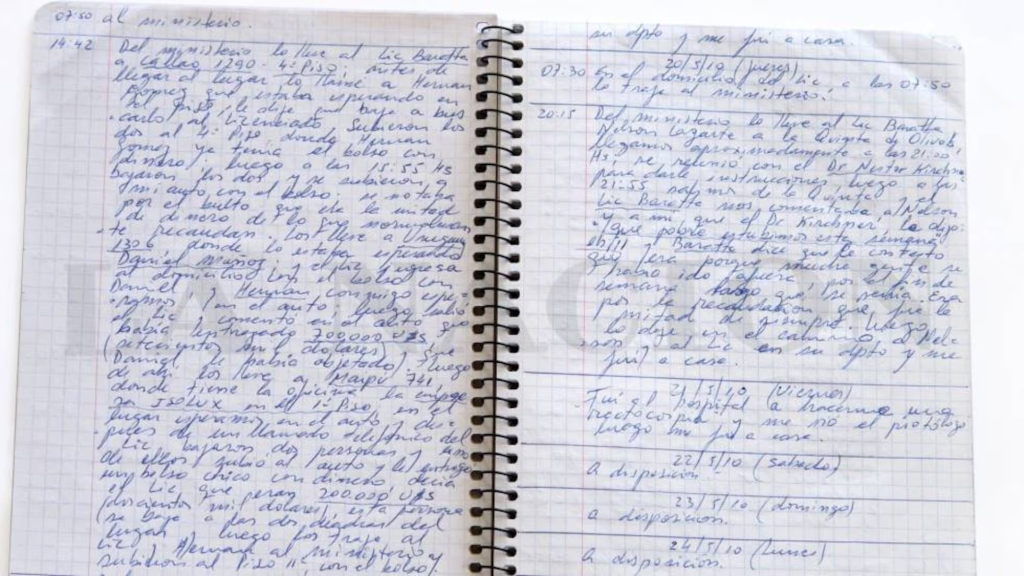 07:50 al ministerio.
14:42 Del ministerio lo lleve al Lic Baratta
a Callao 1290 - 4º Piso, antes de
llegar al lugar lo llame a Hernan
Gomez que estaba esperando en
el Piso, le dije que baje a bus-
carlo al Licenciado. Subieron los
dos al 4º Piso donde Hernan
Gomez ya tenia el bolso con
dinero, luego a las 15:55 Hs
bajaron los dos y se subieron a
mi auto con el bolso, se notaba
por el bulto que era la mitad
de dinero de lo que normalmen-
te recaudan. Los lleve a Uruguay
1306, donde lo estaba esperando
Daniel Muñoz, y el Lic ingresa
al domicilio con el bolso con
Daniel y Hernan conmigo espe-
ramos en el auto, luego salió
el Lic y comento en el auto que
habia entregado 700.000 U$S
(setecientos mil dolares) y que
Daniel le habia objetado. Luego
de ahi los lleve a Maipu 741,
donde tiene la oficina la empre-
sa ISOLUX en el 1º Piso, en el
lugar esperamos en el auto y des-
pues de un llamado telefonico del
Lic, bajaron dos personas y uno
de ellos subio al auto y le entrego
un bolso chico con dinero decia
el Lic que eran 200.000 U$S
(doscientos mil dolares), esta persona
se bajo a las dos cuadras del
lugar luego los traje al
Lic y Hernan al ministerio y
subieron al Piso 11 con el bolso.
su dpto y me fui a casa.
20/5/10 (jueves)
07:30 En el domicilio del Lic a las 07:50
lo traje al ministerio.
20:15 Del ministerio lo lleve al Lic Baratta
Nelson Lazarte a la Quinta de Olivos,
llegamos aproximadamente a las 21:00
Hs y se reunió con el Dr Nestor Kirchner
para darle instrucciones, luego a las
21:55 salimos de la Quinta y el
Lic Baratta nos comentaba al Nelson
y a mi, que el Dr Kirchner, le dijo:
"que pobre estubimos esta semana
eh!!! y Baratta dice que le contesto
que fera porque mucha gente se
habia ido afuera, por el fin de
semana largo que se venia. Era
por la recaudación que fue la
mitad de siempre. Luego
lo deje en el camino al Nel-
son y al Lic en su dpto y me
fui a casa.
21/5/10 (Viernes)
Fui al hospital a hacerme una
rectocopia y me vio el protólogo
luego me fui a casa.
22/5/10 (Sabado)
A disposición.
23/5/10 (domingo)
a disposicion.
24/5/10 (lunes)
A disposicion.
LA NACION